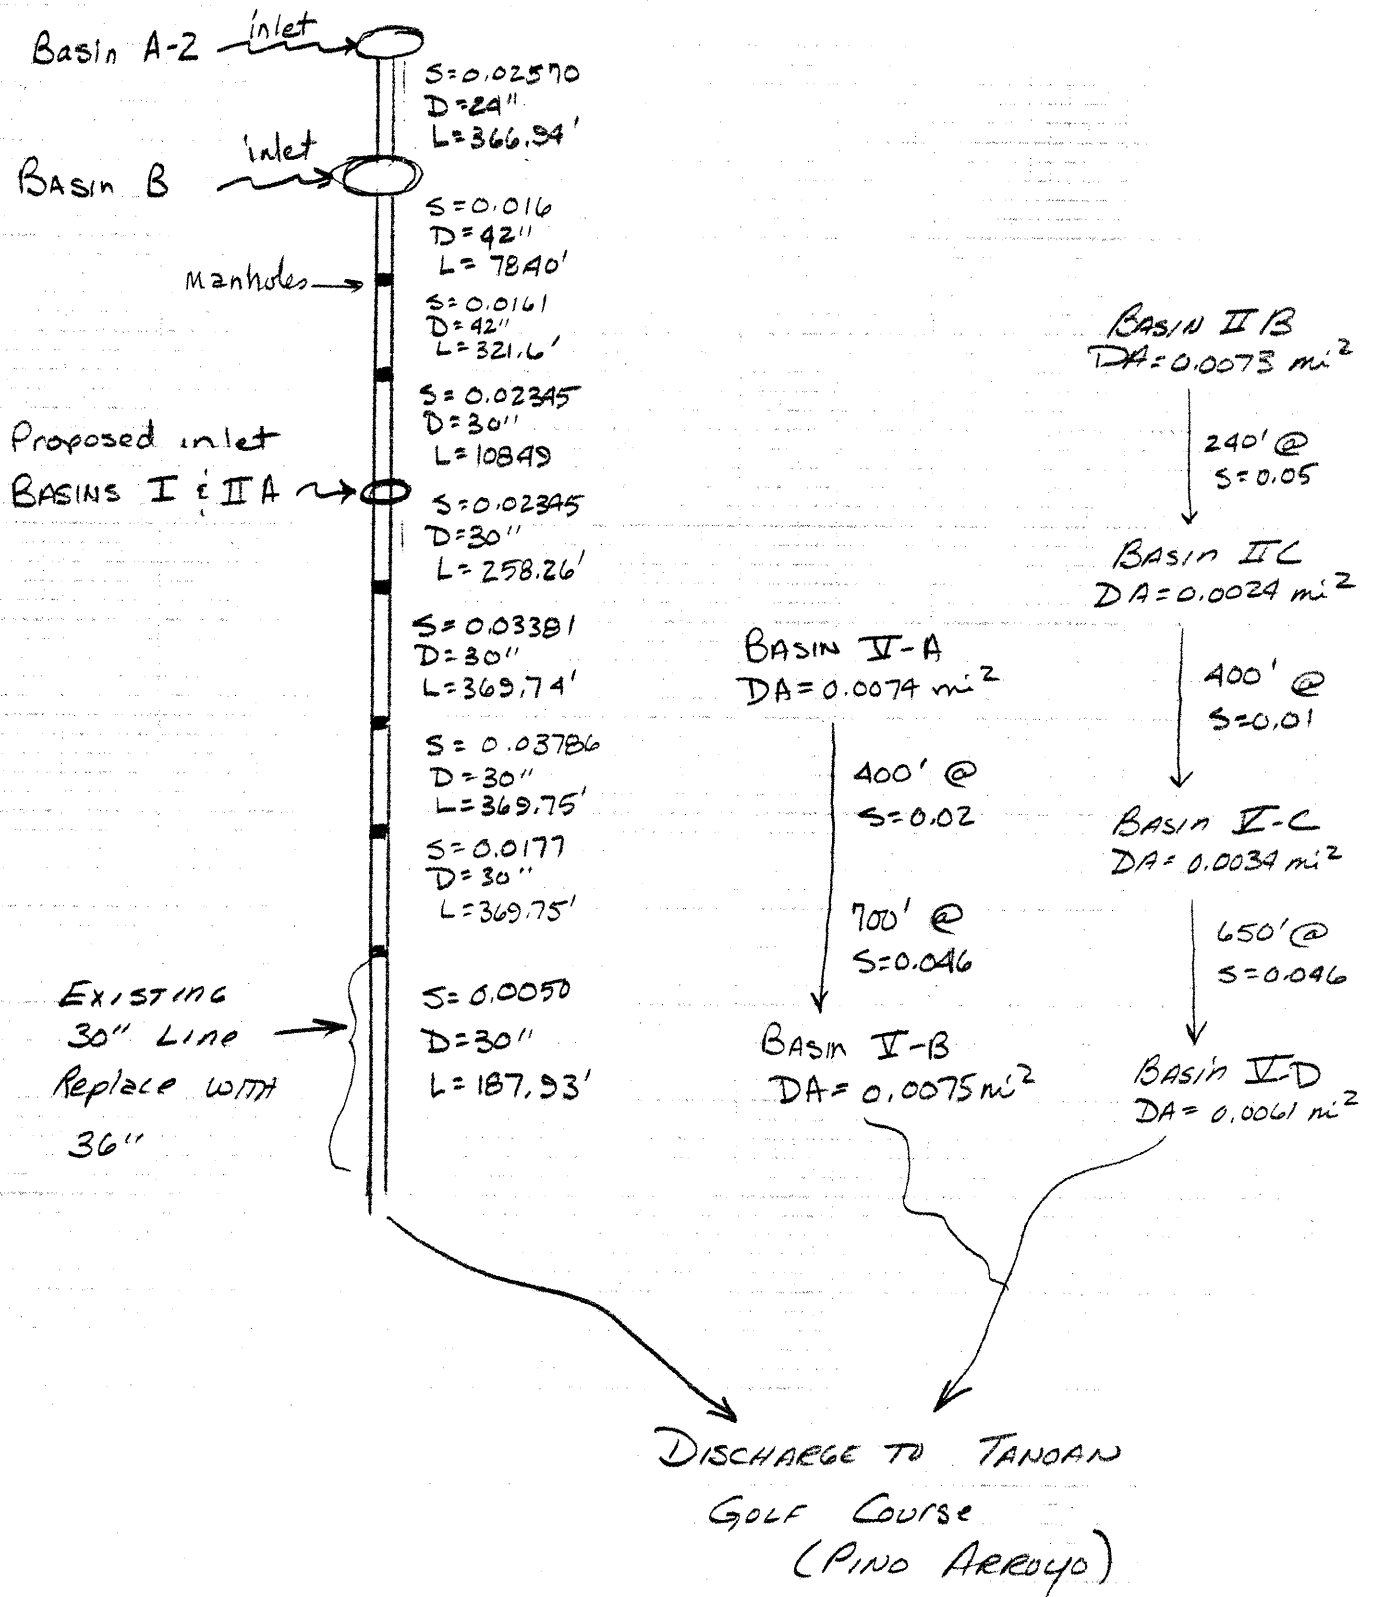 Basin A-2
inlet
S=0.02570
D=24"
L=366.94'
inlet
BASIN B
S=0.016
D=42"
L=7840'
Manholes
S=0.0161
D=42"
L=321.6'
S=0.02345
D=30"
L=10849
Proposed inlet
BASINS I & II A
S=0.02345
D=30"
L=258.26'
S=0.03381
D=30"
L=369.74'
S=0.03786
D=30"
L=369.75'
S=0.0177
D=30"
L=369.75'
EXISTING
30" Line
Replace WITH
36"
S=0.0050
D=30"
L=187.93'
BASIN V-A
DA=0.0074 mi²
400' @
S=0.02
700' @
S=0.046
BASIN V-B
DA=0.0075 mi²
BASIN II B
DA=0.0073 mi²
240' @
S=0.05
BASIN II C
DA=0.0024 mi²
400' @
S=0.01
BASIN V-C
DA=0.0034 mi²
650' @
S=0.046
BASIN V-D
DA=0.0061 mi²
DISCHARGE TO TANOAN
GOLF COURSE
(PINO ARROYO)